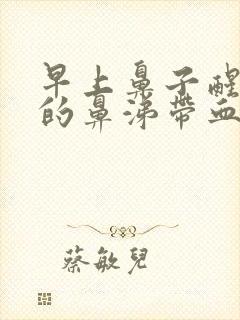 早上鼻子醒
的鼻涕带血
蔡敏兒